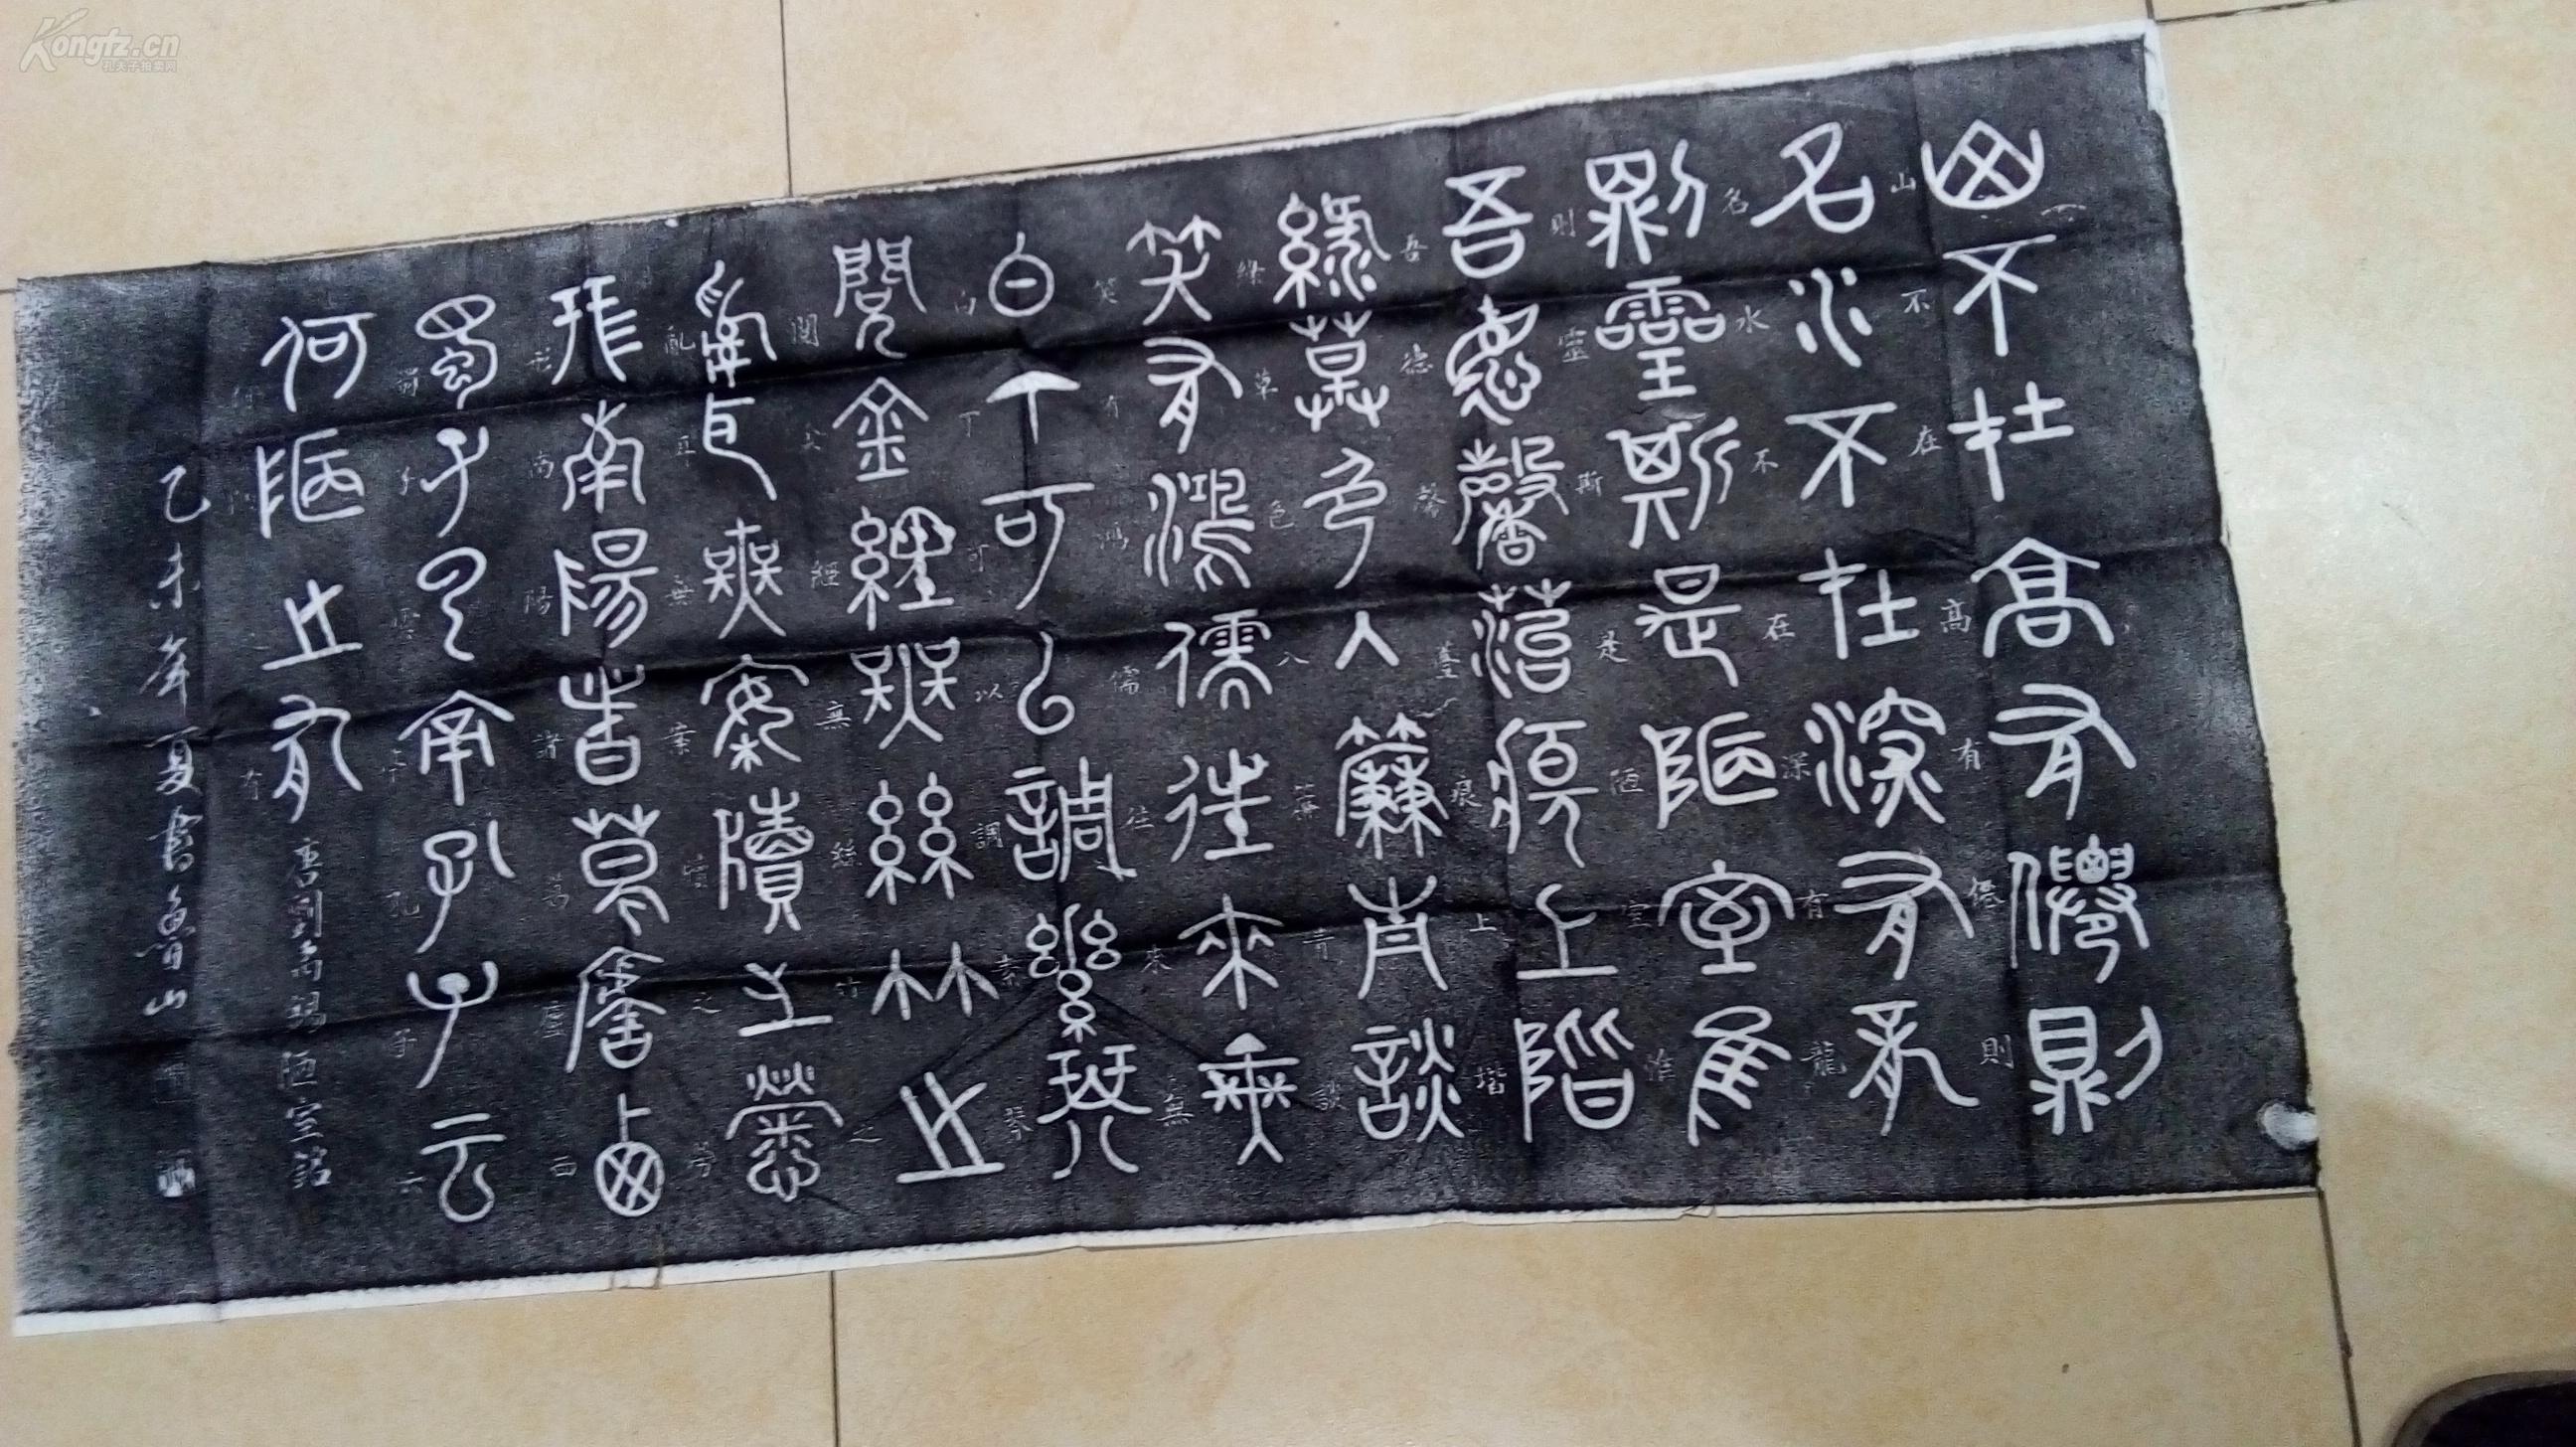 山不在高有僊則
名水不在深有龍
則靈斯是陋室惟
吾德馨苔痕上階
綠草色入簾青談
笑有鴻儒往來無
白丁可以調素琴
閱金經無絲竹之
亂耳無案牘之勞
形南陽諸葛廬西
蜀子雲亭孔子云
何陋之有
唐劉禹錫陋室銘
乙未年夏書魯山
Kongfz.cn
孔夫子拍卖网